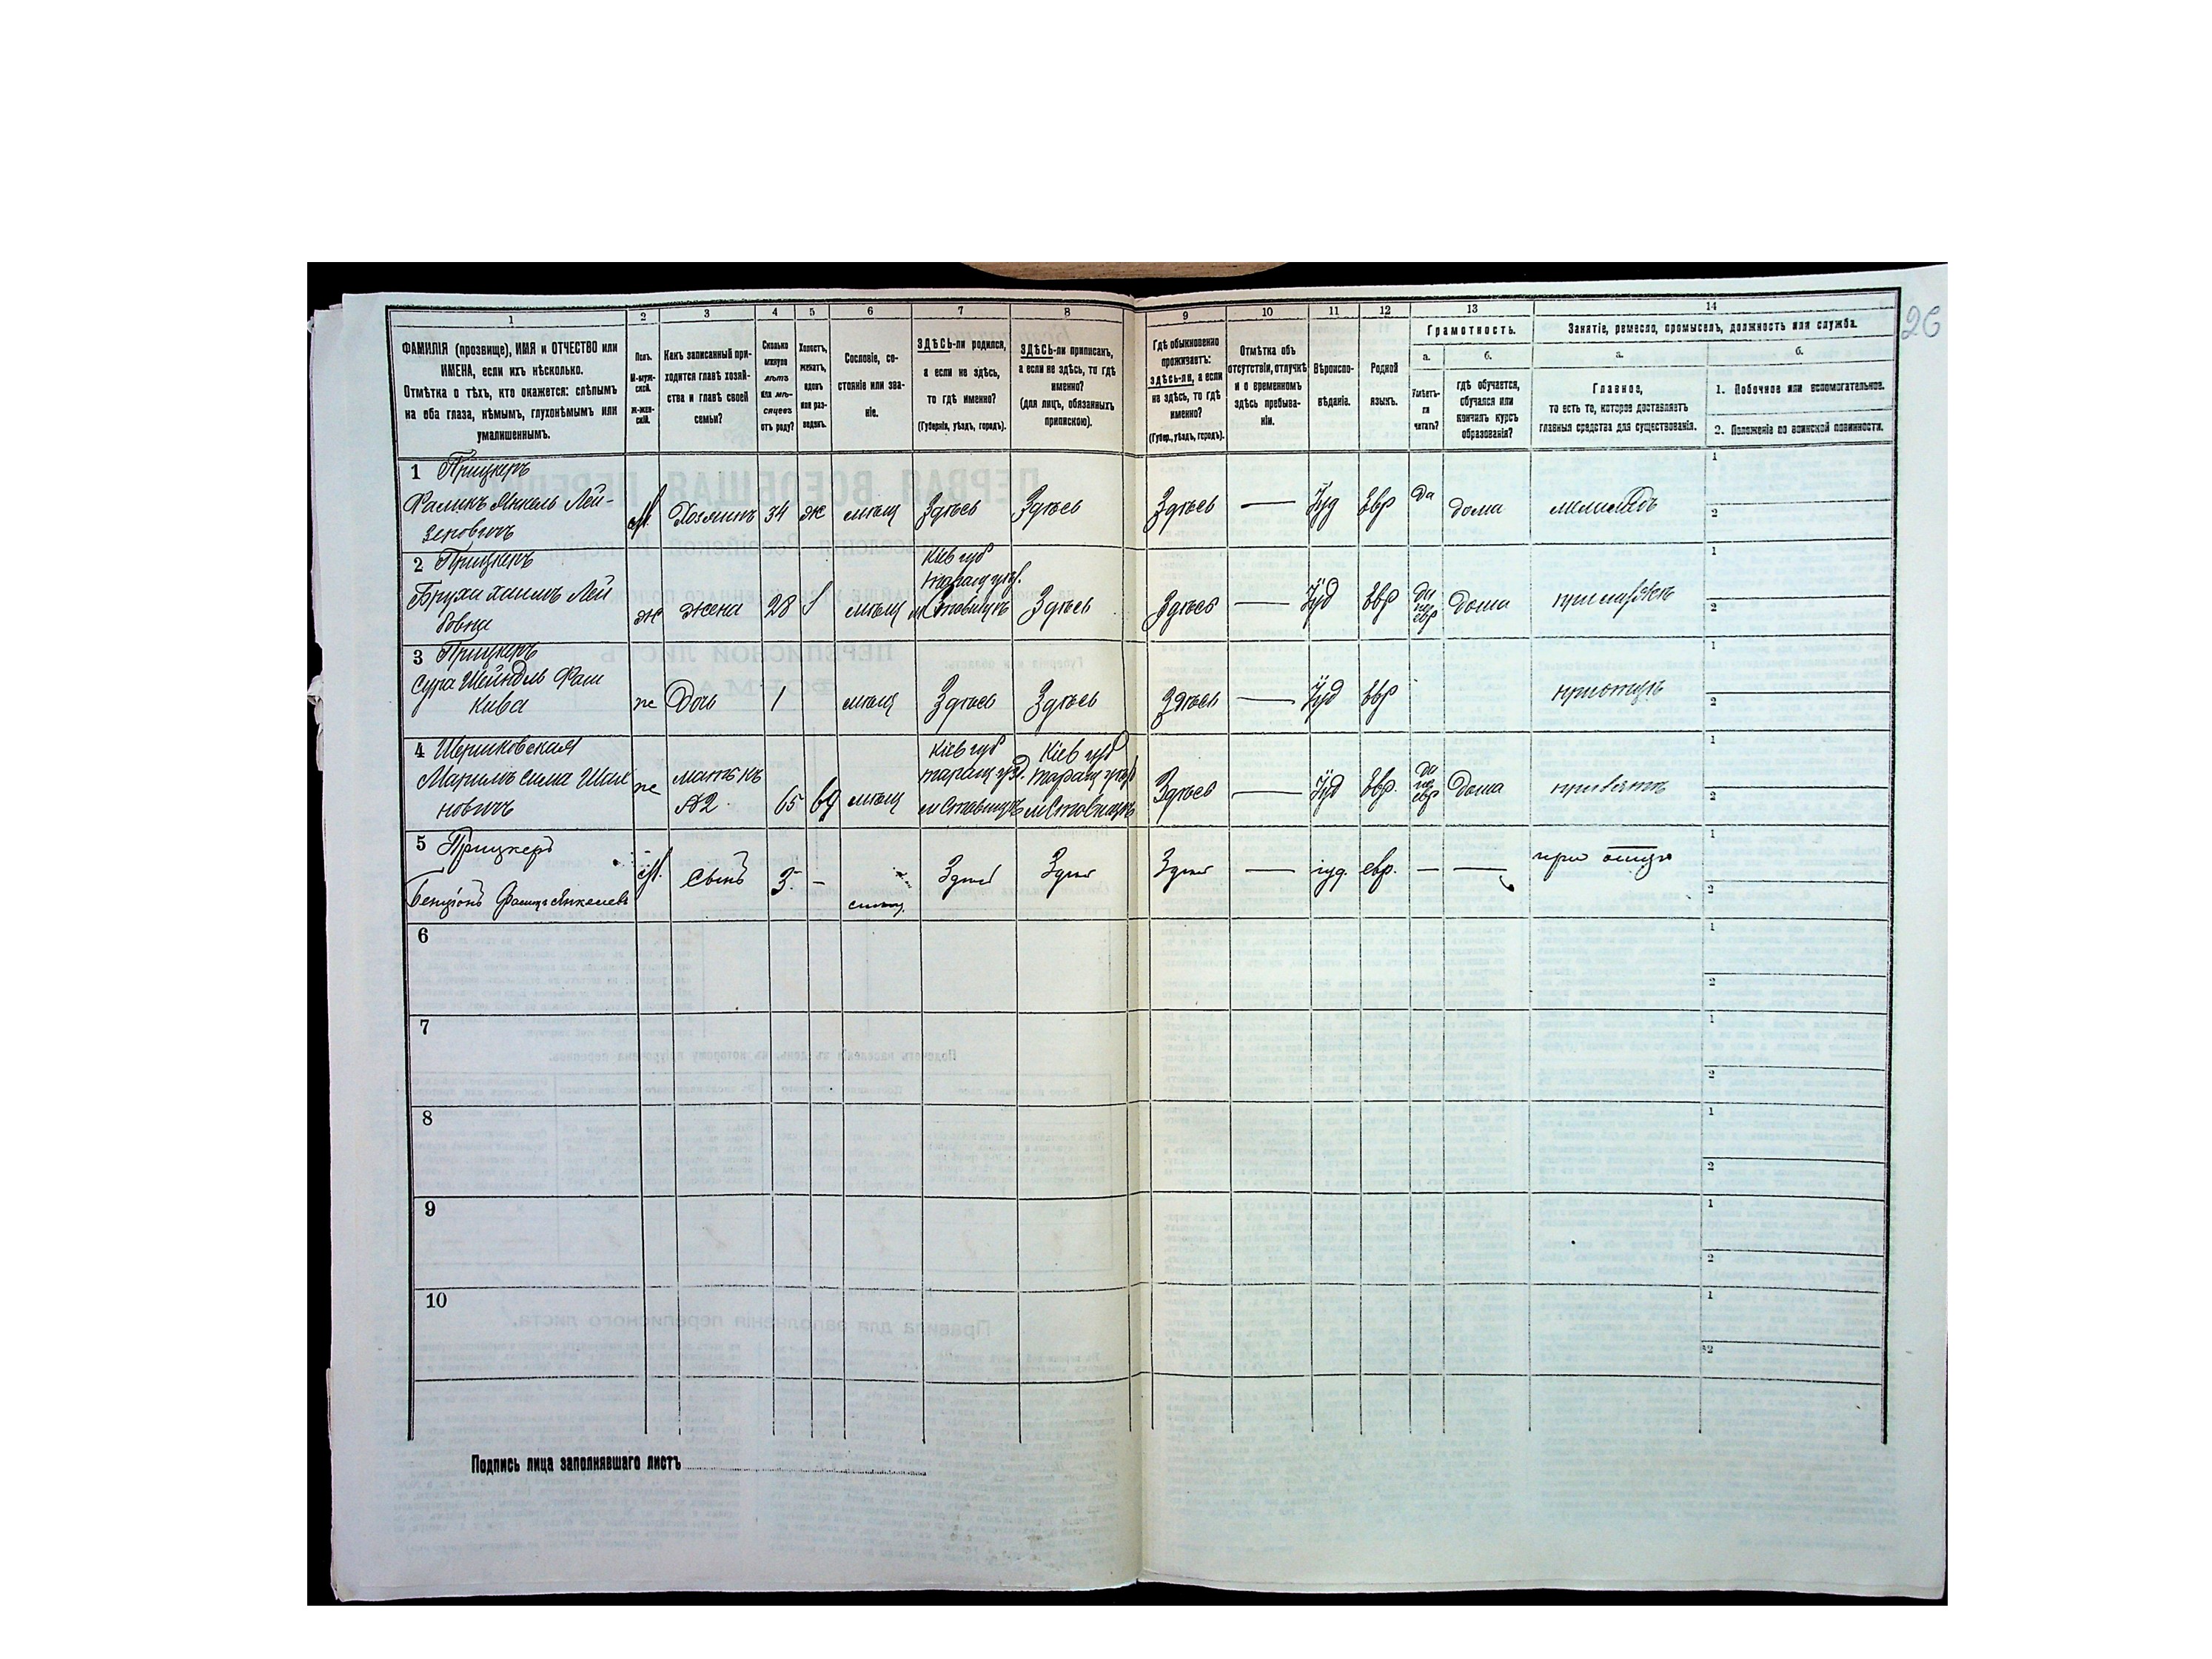 26
1 2 3 4 5 6 7 8 9 10 11 12 13 14
ФАМИЛІЯ (прозвище), ИМЯ и ОТЧЕСТВО или
ИМЕНА, если ихъ нѣсколько.
Отмѣтка о тѣхъ, кто окажется: слѣпымъ
на оба глаза, нѣмымъ, глухонѣмымъ или
умалишеннымъ.
Полъ.
М-муж-
ской.
Ж-жен-
скій.
Какъ записанный при-
ходится главѣ хозяй-
ства и главѣ своей
семьи?
Сколько
минуло
лѣтъ
или мѣ-
сяцевъ
отъ роду?
Холостъ,
женатъ,
вдовъ
или раз-
веденъ.
Сословіе, со-
стояніе или зва-
ніе.
ЗДѢСЬ-ли родился,
а если не здѣсь,
то гдѣ именно?
(Губернія, уѣздъ, городъ).
ЗДѢСЬ-ли приписанъ,
а если не здѣсь, то гдѣ
именно?
(для лицъ, обязанныхъ
припискою).
Гдѣ обыкновенно
проживаетъ:
здѣсь-ли, а если
не здѣсь, то гдѣ
именно?
(Губер., уѣздъ, городъ).
Отмѣтка объ
отсутствіи, отлучкѣ
и о временномъ
здѣсь пребыва-
ніи.
Вѣроиспо-
вѣданіе.
Родной
языкъ.
Грамотность.
а.
Умѣетъ-
ли
читать?
б.
гдѣ обучается,
обучался или
кончилъ курсъ
образованія?
Занятіе, ремесло, промыселъ, должность или служба.
а.
Главное,
то есть то, которое доставляетъ
главныя средства для существованія.
б.
1. Побочное или вспомогательное.
2. Положеніе по воинской повинности.
1 Прицкеръ
Фаликъ Янкель Лей-
зеровичъ
М Хозяинъ 34 ж мѣщ Здѣсь Здѣсь Здѣсь — Іуд Евр да дома меламедъ
2 Прицкеръ
Бруха Лей
бовна
ж жена 28 мѣщ
Кіев губ
таращ уѣз.
м Ставищѣ
Здѣсь Здѣсь — Іуд Евр
да
по
евр
дома при мужѣ
3 Прицкеръ
Сура Шейндль Фали
кова
ж Дочь 1 мѣщ Здѣсь Здѣсь Здѣсь — Іуд Евр при отцѣ
4
ж
мать къ
№2
65 вд мѣщ
Кіев губ
таращ уѣз.
м Ставищѣ
Кіев губ
таращ уѣз
м Ставищѣ
Здѣсь — Іуд Евр.
да
по
евр
дома при зятѣ
5 Прицкеръ
Бенціонъ Янкелевъ
М. Сынъ 3 – Здѣсь Здѣсь Здѣсь — іуд. евр. — — при отцѣ
6
7
8
9
10
1
2
1
2
1
2
1
2
1
2
1
2
1
2
1
2
1
2
1
2
Подпись лица заполнявшаго листъ